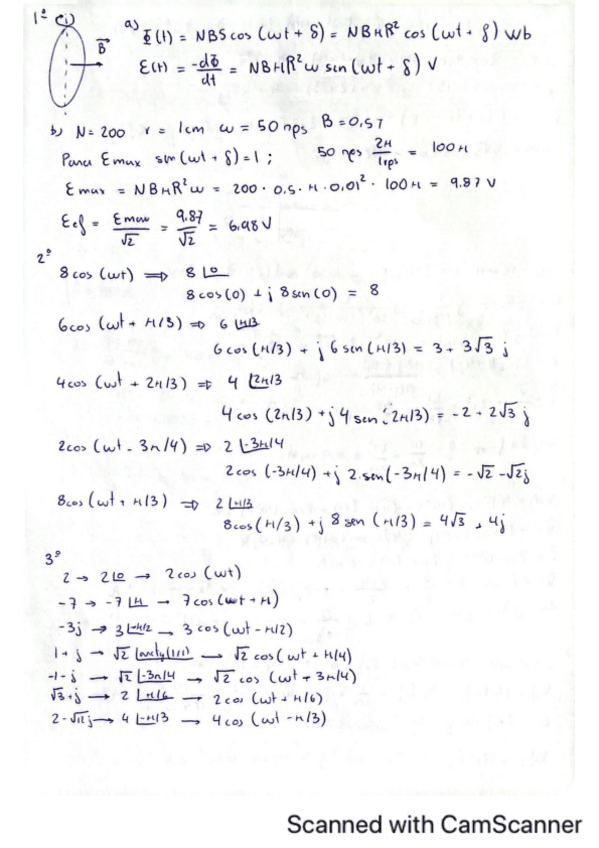 1º
a) Φ(t) = NBS cos (ωt + δ) = NBπR² cos (ωt + δ) Wb
B⃗
E(t) = -dΦ/dt = NBπR²ω sin (ωt + δ) V
b) N = 200 r = 1cm ω = 50 rps B = 0.5T
Para Emax sin (ωt + δ) = 1 ; 50 rps · 2π/1rps = 100π
Emax = NBπR²ω = 200 · 0.5 · π · 0.01² · 100π = 9.87 V
Eef = Emax/√2 = 9.87/√2 = 6.98 V
2º
8 cos (ωt) ⇒ 8 ∠0
8 cos(0) + j 8 sen(0) = 8
6 cos (ωt + π/3) ⇒ 6 ∠π/3
6 cos (π/3) + j 6 sen (π/3) = 3 + 3√3 j
4 cos (ωt + 2π/3) ⇒ 4 ∠2π/3
4 cos (2π/3) + j 4 sen (2π/3) = -2 + 2√3 j
2 cos (ωt - 3π/4) ⇒ 2 ∠-3π/4
2 cos (-3π/4) + j 2·sen (-3π/4) = -√2 - √2 j
8 cos (ωt + π/3) ⇒ 2 ∠π/3
8 cos (π/3) + j 8 sen (π/3) = 4√3 + 4j
3º
2 → 2∠0 → 2 cos (ωt)
-7 → -7 ∠π → 7 cos (ωt + π)
-3j → 3 ∠-π/2 → 3 cos (ωt - π/2)
1 + j → √2 ∠arctg(1/1) → √2 cos (ωt + π/4)
-1 - j → √2 ∠-3π/4 → √2 cos (ωt + 3π/4)
√3 + j → 2 ∠π/6 → 2 cos (ωt + π/6)
2 - √12 j → 4 ∠-π/3 → 4 cos (ωt - π/3)
Scanned with CamScanner